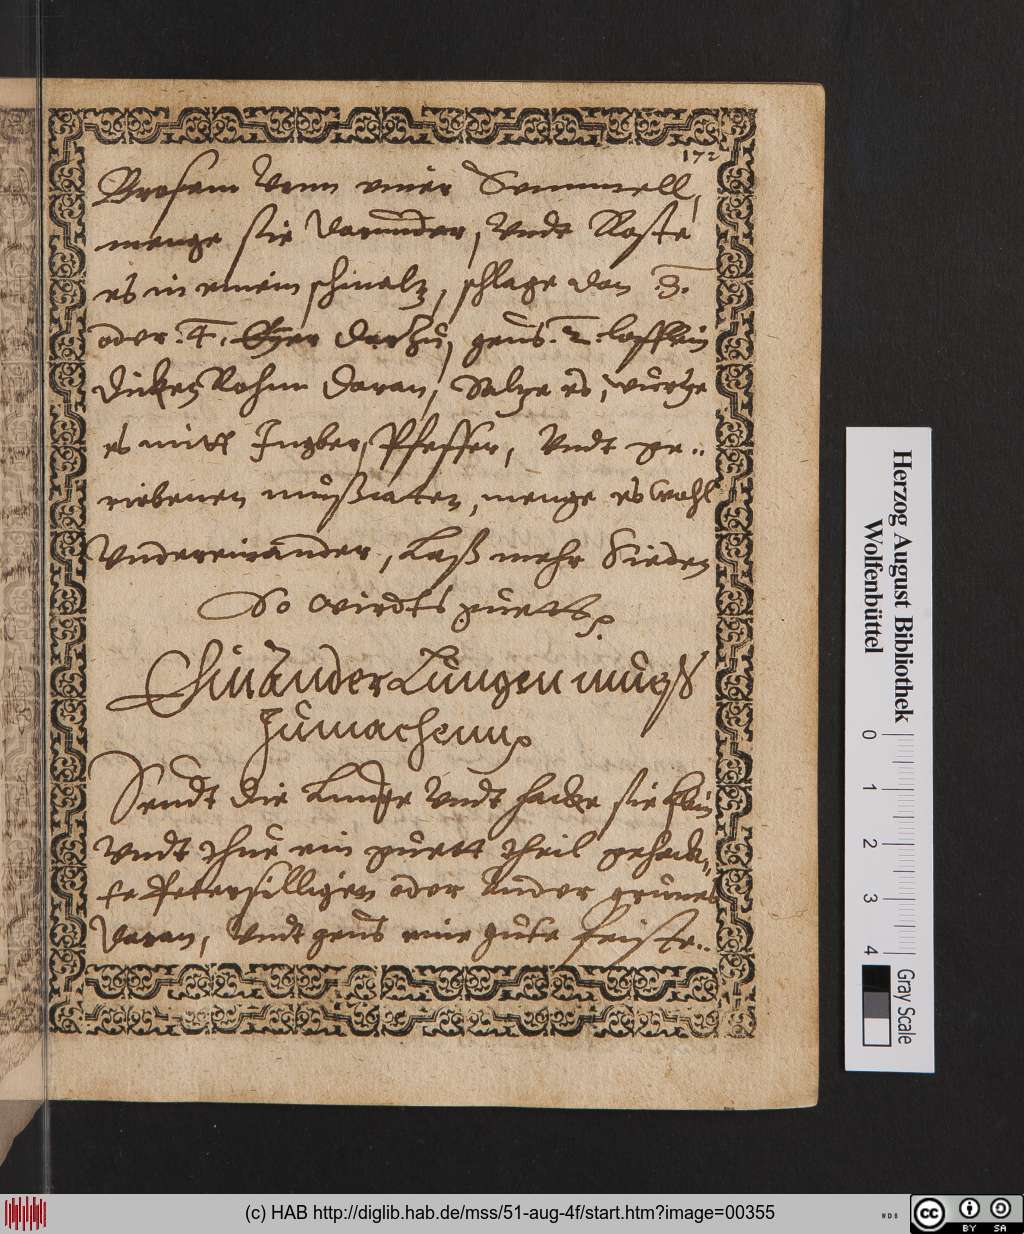 172
Brosam Vonn einer Semmell,
menge sie darunder, Vndt Röste
es in einem schmaltz, schlage den .3.
oder .4. Eyer darzu, geus .2. löfflein
dicken Rohm daran, Saltze es, würtze
es mitt Ingber, Pfeffer, Vndt ge¨
riebenen mußcaten, menge es wohl
Vndereinander, Laß mehr Sieden
So wirdts guett
Ein Ander Lungen mueß
Zumachenn
Sendt die Lunge Vndt hacke sie klein
Vndt thue ein guett theil gehack¨
te Petersilligen oder ander grünes
daran, Vndt geus eine gute feiste¨
Herzog August Bibliothek
Wolfenbüttel
0 1 2 3 4
Gray Scale
(c) HAB http://diglib.hab.de/mss/51-aug-4f/start.htm?image=00355
WDB
cc BY SA